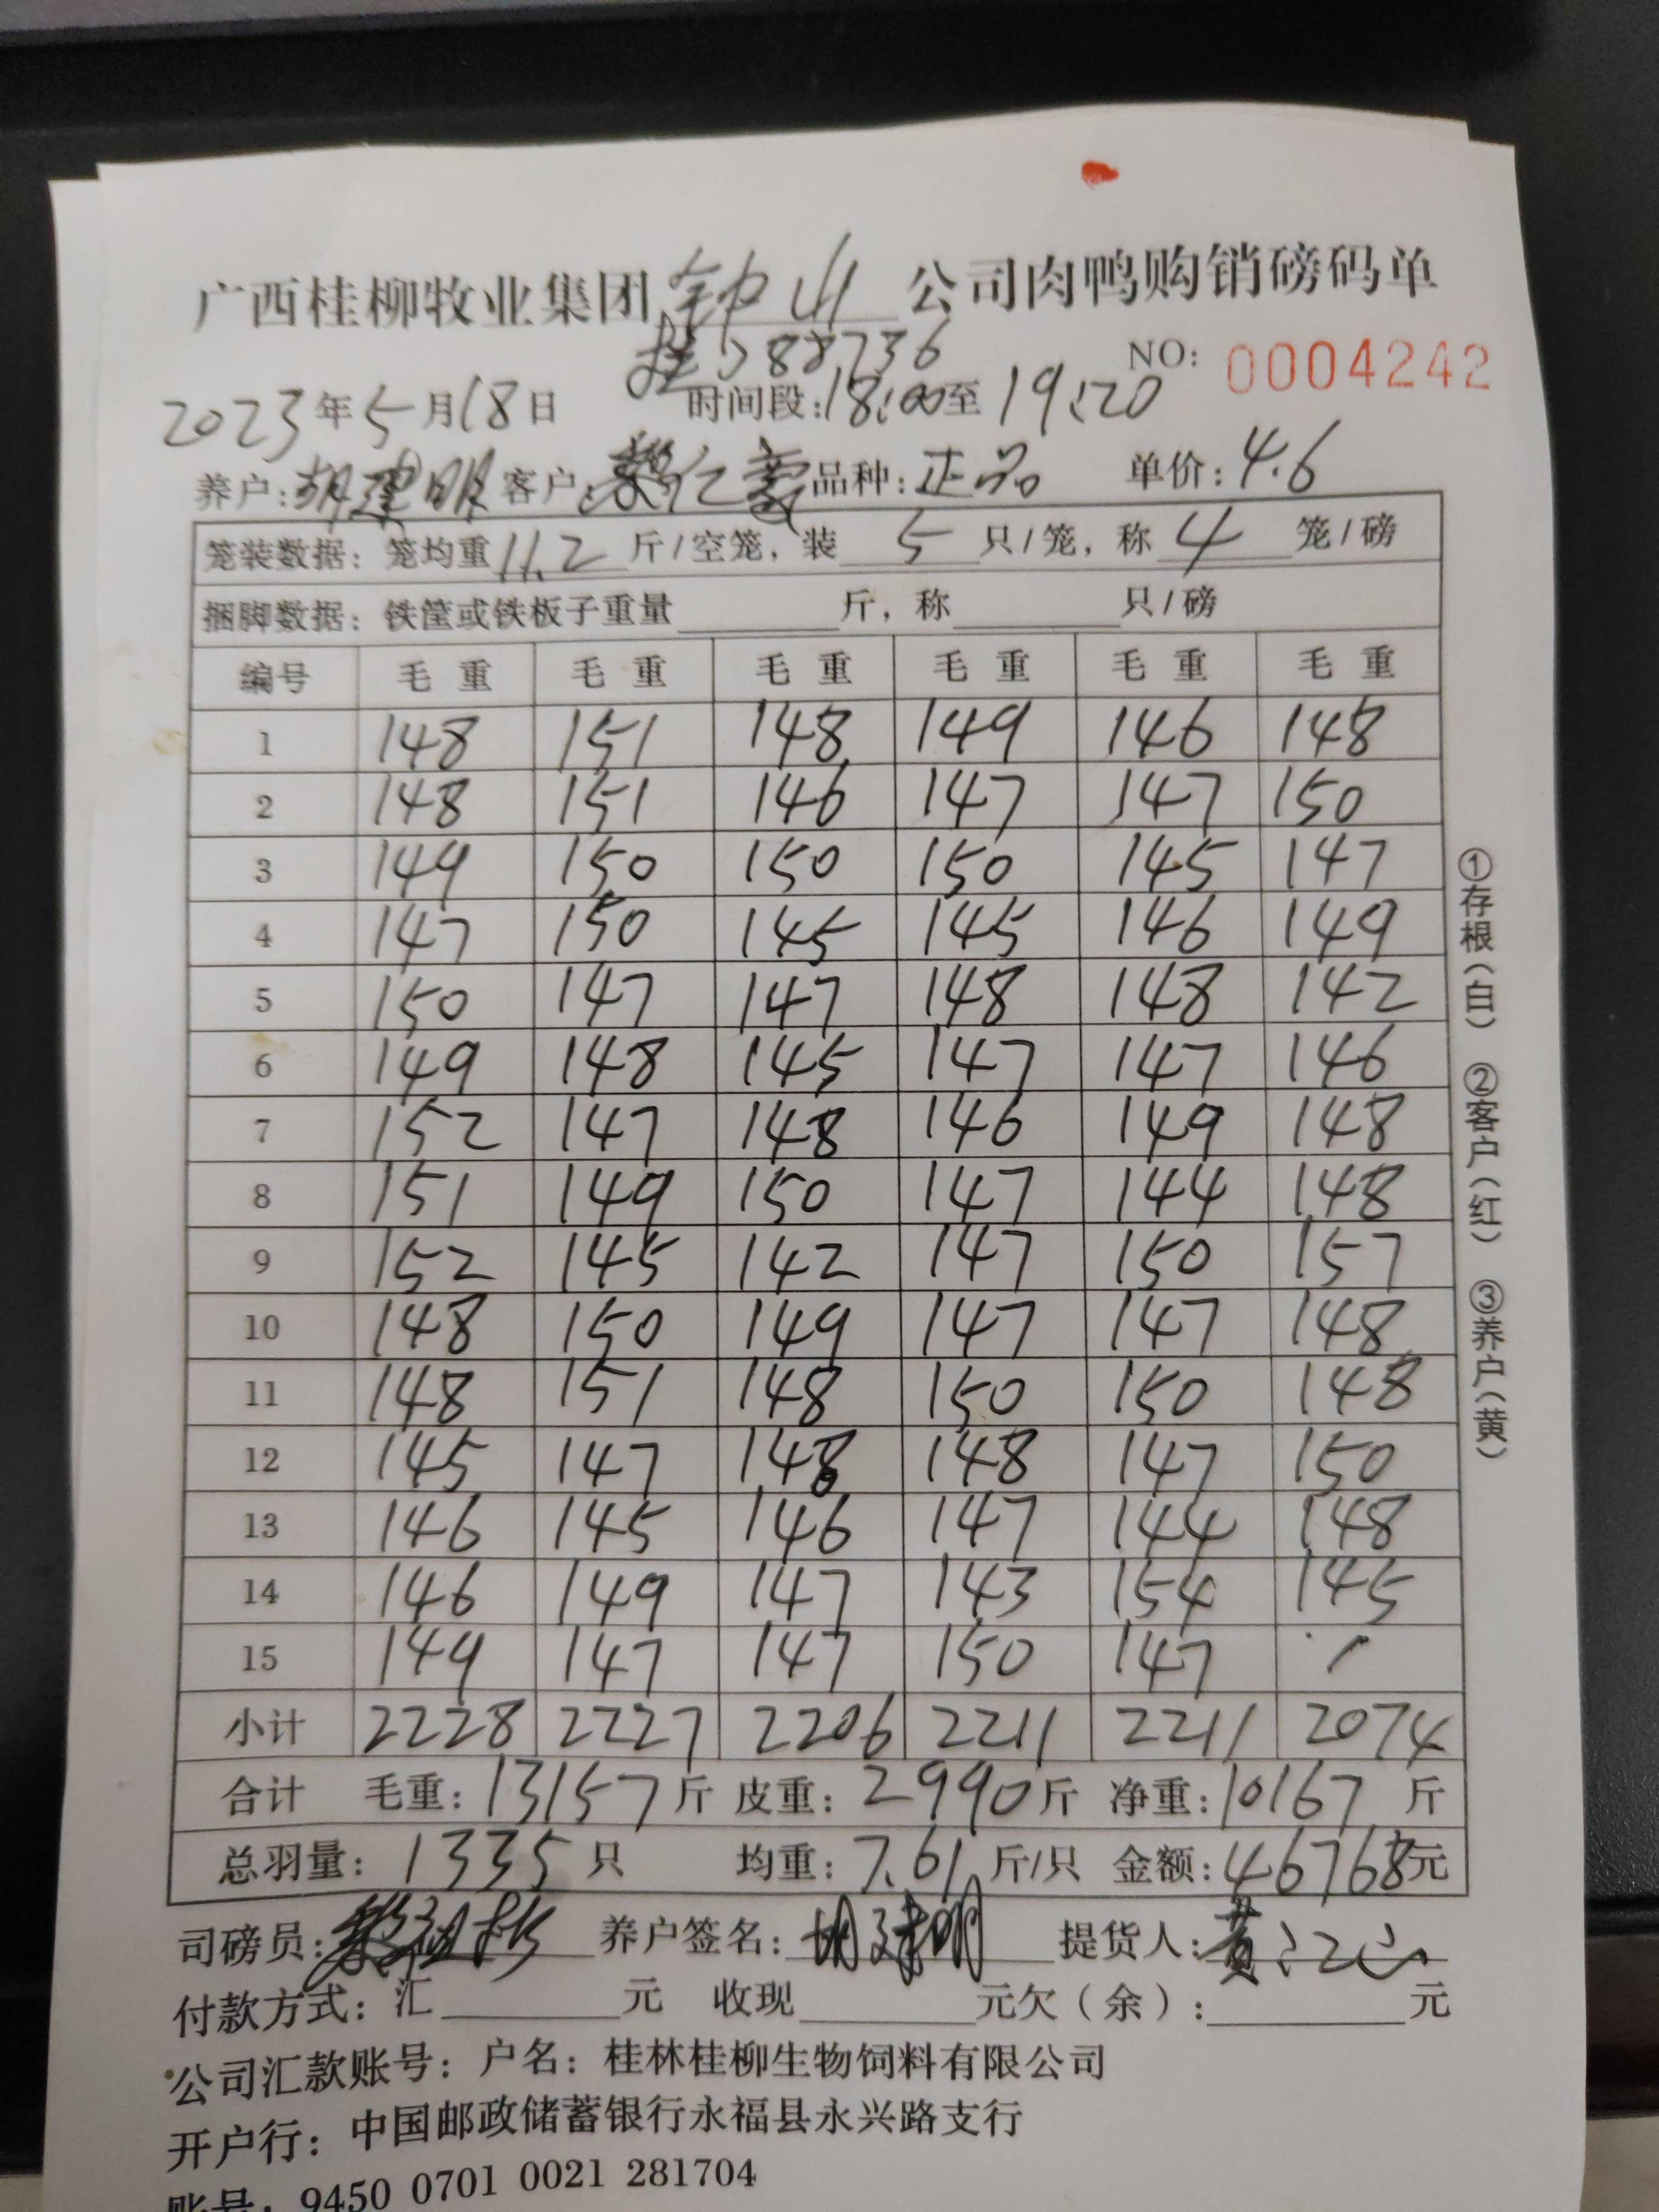 广西桂柳牧业集团 钟山 公司肉鸭购销磅码单
88736
NO: 0004242
2023年5月18日 时间段:18:00至19:20
养户:胡建明 客户:黎仁 品种:正品 单价:4.6
笼装数据:笼均重11.2斤/空笼,装5只/笼,称4笼/磅
捆脚数据:铁筐或铁板子重量 斤,称 只/磅
编号 毛重 毛重 毛重 毛重 毛重 毛重
1 148 151 148 149 146 148
2 148 151 146 147 147 150
3 149 150 150 150 145 147
4 147 150 145 145 146 149
5 150 147 147 148 148 142
6 149 148 145 147 147 146
7 152 147 148 146 149 148
8 151 149 150 147 144 148
9 152 145 142 147 150 157
10 148 150 149 147 147 148
11 148 151 148 150 150 148
12 145 147 148 148 147 150
13 146 145 146 147 144 148
14 146 149 147 143 154 145
15 149 147 147 150 147
小计 2228 2227 2206 2211 2211 2074
合计 毛重:13157斤 皮重:2990斤 净重:10167斤
总羽量:1335只 均重:7.61斤/只 金额:46768元
司磅员: 养户签名:胡建明 提货人:黄江山
付款方式:汇 元 收现 元欠(余): 元
公司汇款账号:户名:桂林桂柳生物饲料有限公司
开户行:中国邮政储蓄银行永福县永兴路支行
账号:9450 0701 0021 281704
①存根(白) ②客户(红) ③养户(黄)